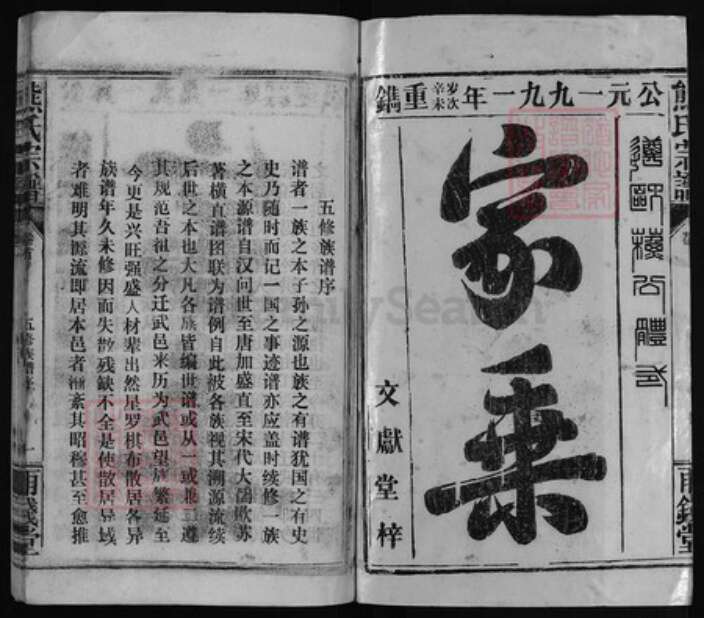 公元一九九一年岁次辛未重鐫
遵歐蘇公體式
家乗
文獻堂梓
熊氏宗譜
五修族谱序
谱者一族之本子孙之源也族之有谱犹国之有史
史乃随时而记一国之事迹谱亦应盖时续修一族
之本源谱自汉问世至唐加盛直至宋代大儒欧苏
著横直谱图联为谱例自此被各族视其溯源流续
后世之本也大凡各族皆编世谱或从一或兼二遵
其规范吾祖之分迁武邑来历为武邑望族繁延至
今更是兴旺强盛人材辈出然星罗棋布散居各异
族谱年久未修因而失散残缺不全是使散居异域
者难明其源流即居本邑者渐紊其昭穆甚至愈推
熊氏宗譜
五修族谱序
一